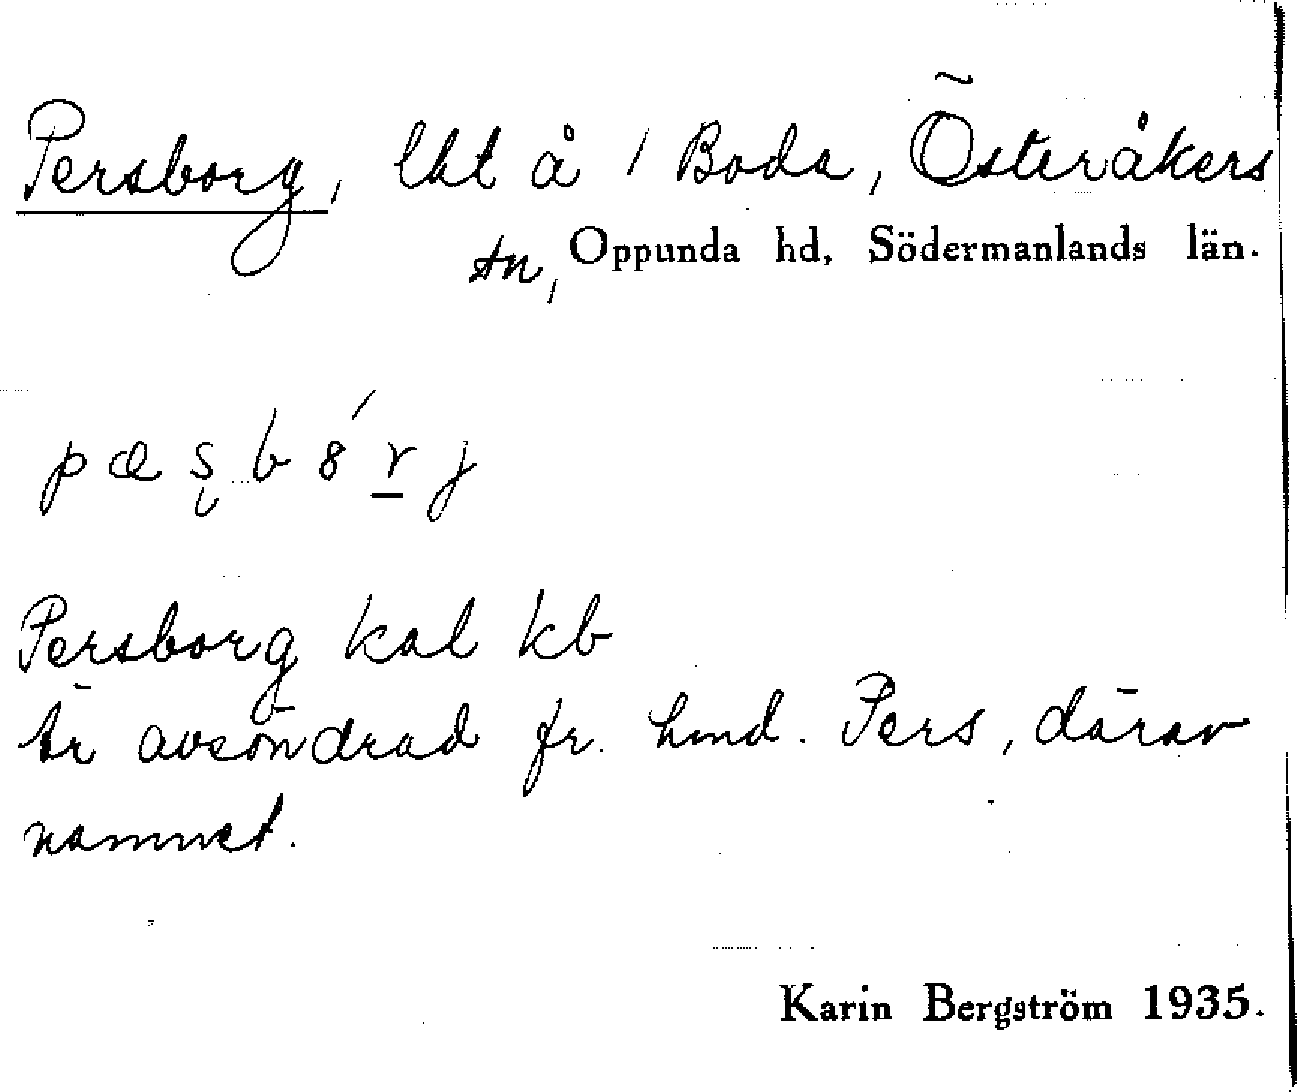 Persborg, lht å 1 Boda, Österåkers
sn, Oppunda hd, Södermanlands län.
pæʂbɞ́rj
Persborg kal kb
är avsöndrad fr. hmd. Pers, därav
namnet.
Karin Bergström 1935.